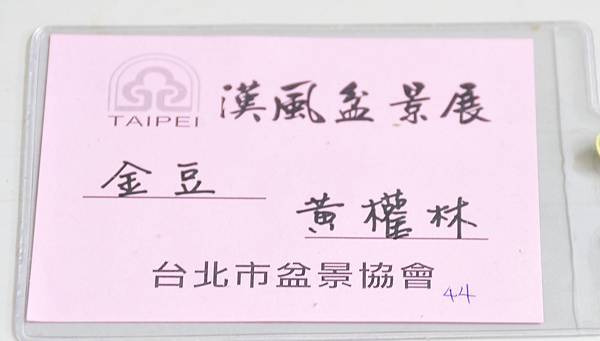 TAIPEI
漢風盆景展
金豆
黃權林
台北市盆景協會
44